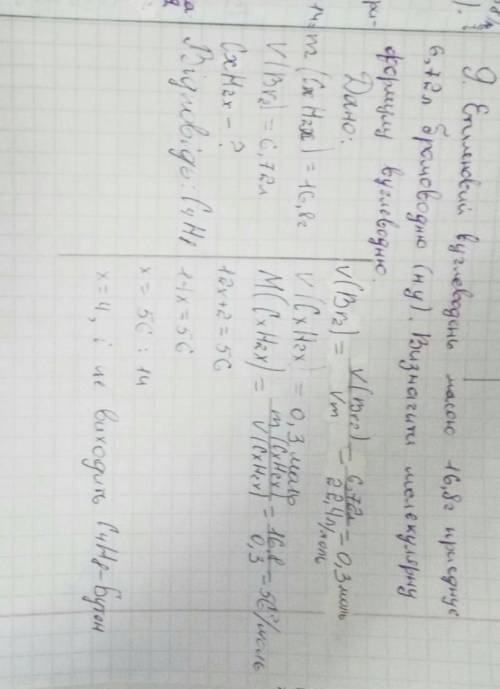 9. Етиленовий вуглеводень масою 16,8г приєднує
6,72л бромоводню (н.у). Визначити молекулярну
формулу вуглеводню.
Дано:
m(CxH2x) = 16,8г
V(Br2) = 6,72л
CxH2x - ?
Відповідь: C4H8
ν(Br2) = V(Br2)/Vm = 6,72л/22,4л/моль = 0,3моль
ν(CxH2x) = 0,3моль
M(CxH2x) = m(CxH2x)/ν(CxH2x) = 16,8/0,3 = 56г/моль
12x+2=56
14x=56
x=56:14
x=4, і не виходить C4H8-Бутен